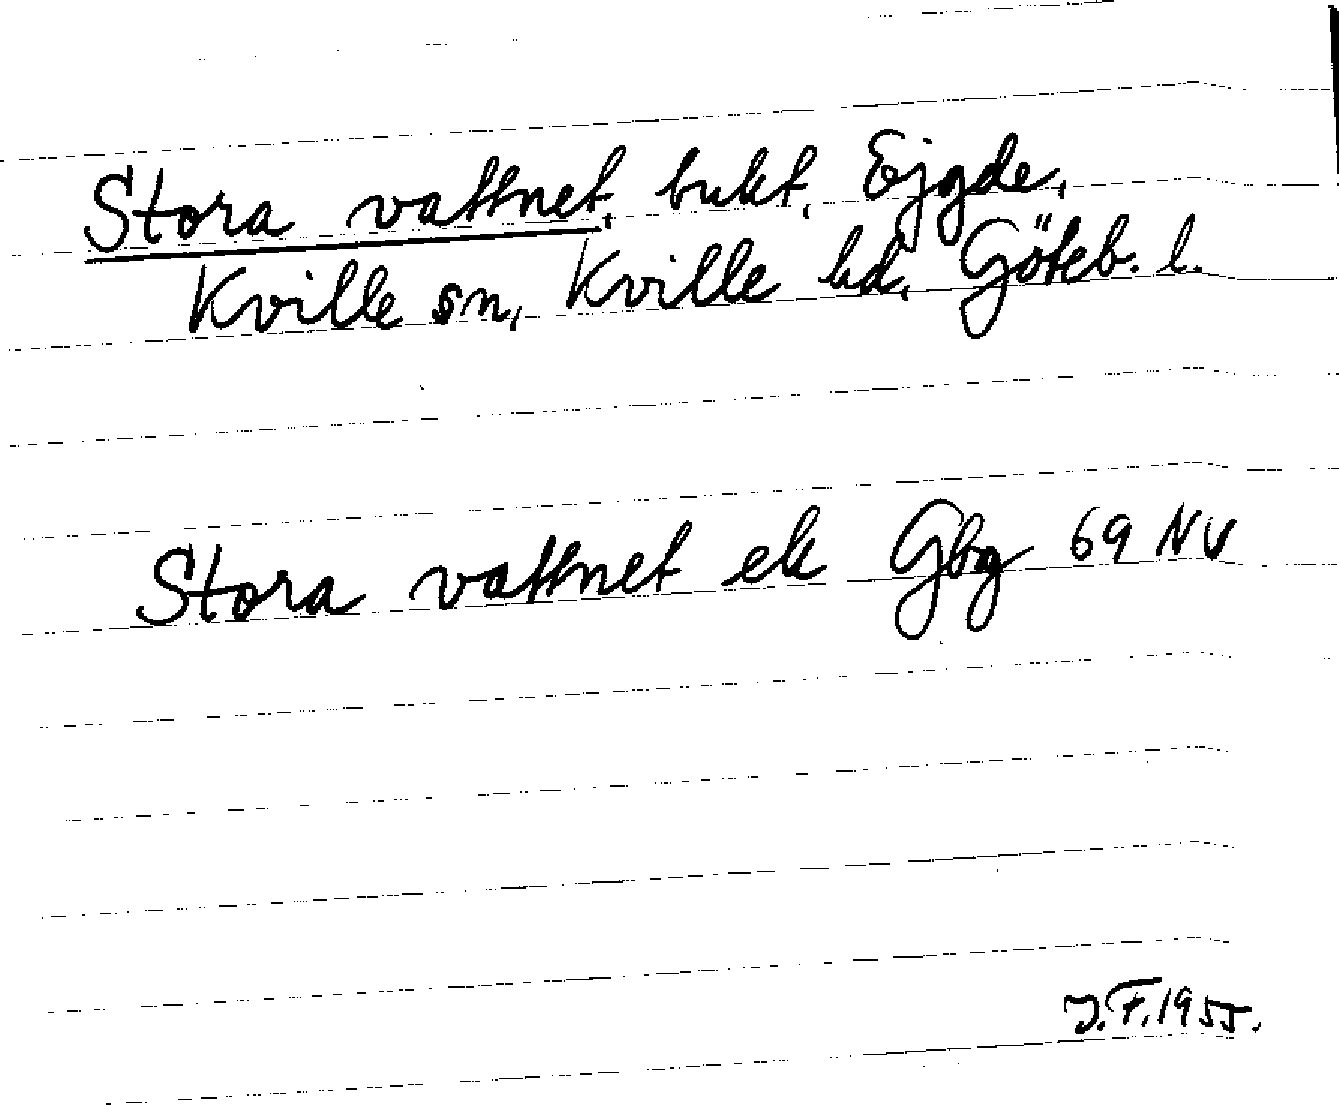 Stora vattnet, bukt, Ejgde,
Kville sn, Kville hd, Göteb. l.
Stora vattnet ek Gbg 69 NV
J.F. 1955.